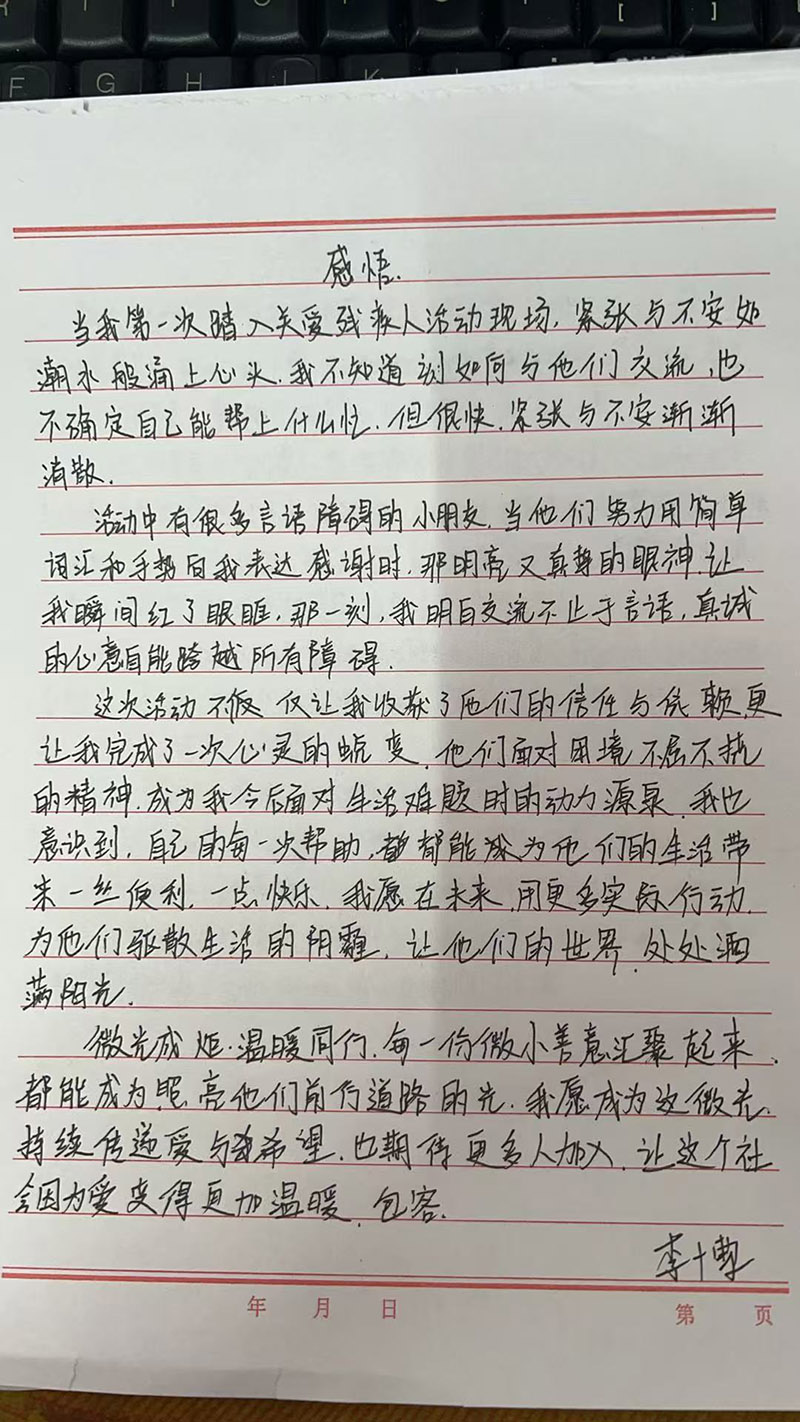 F G H J K L
[ ]
感悟.
当我第一次踏入关爱残疾人活动现场,紧张与不安如
潮水般涌上心头.我不知道刻如何与他们交流,也
不确定自己能帮上什么忙.但很快,紧张与不安渐渐
消散.
活动中有很多言语障碍的小朋友,当他们努力用简单
词汇和手势向我表达感谢时,那明亮又真挚的眼神,让
我瞬间红了眼眶,那一刻,我明白交流不止于言语,真诚
的心意自能跨越所有障碍.
这次活动不仅仅让我收获了他们的信任与依赖更
让我完成了一次心灵的蜕变.他们面对困境不屈不挠
的精神.成为我今后面对生活难题时的动力源泉.我也
意识到,自己的每一次帮助,都都能成为他们的生活带
来一丝便利,一点快乐.我愿在未来,用更多实际行动,
为他们驱散生活的阴霾,让他们的世界,处处洒
满阳光.
微光成炬.温暖同行.每一份微小善意汇聚起来,
都能成为照亮他们前行道路的光.我愿成为这微光,
持续传递爱与希望,也期待更多人加入,让这个社
会因为爱变得更加温暖,包容.
年 月 日
第 页